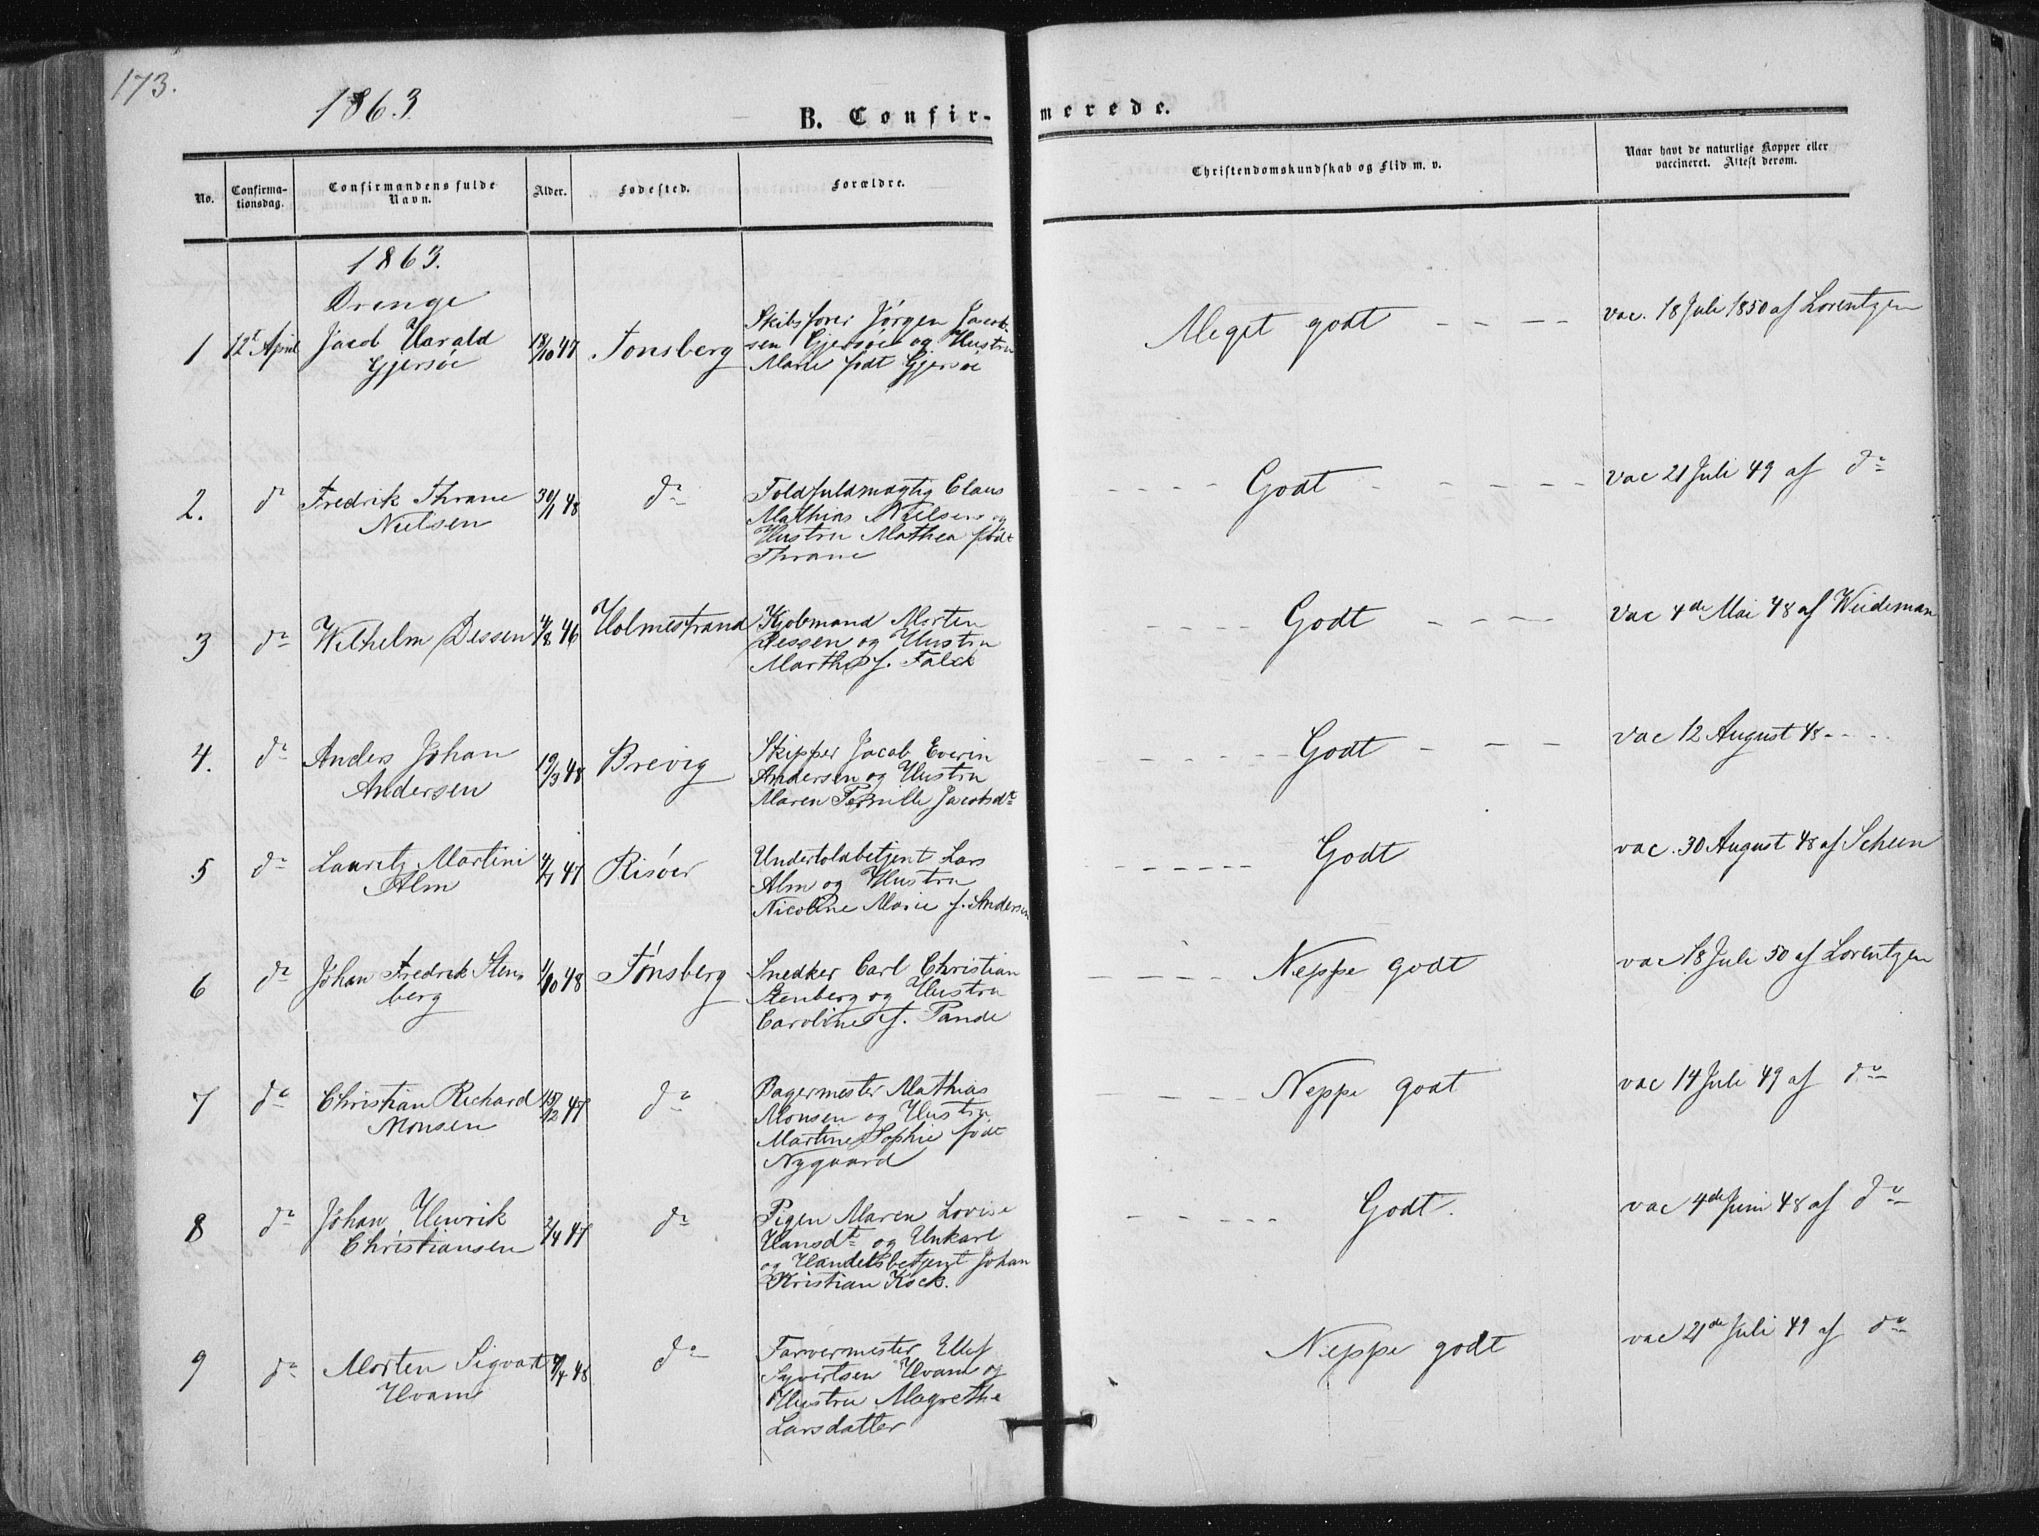 173.
1863
B. Confir-
merede.
No.
Confirma-
tionsdag.
Confirmandens fulde
Navn.
Alder.
Fødested.
Forældre.
Christendomskundskab og Flid m. v.
Naar havt de naturlige Kopper eller
vaccineret. Attest derom.
1863.
Drenge
1 12t April Jacob Harald
Gjersøe
18/10 47 Tønsberg
Skibsfører Jørgen Jacob-
sen Gjersøe og Hustru
Marie født Gjersøe
Meget godt
vac. 18 Juli 1850 af Lorentzen
2. do Fredrik Thrane
Nielsen
30/1 48 do
Toldfuldmægtig Claus
Mathias Nielsen og
Hustru Mathea født
Thrane
Godt
vac 21 Juli 49 af do
3 do Wilhelm Dessen
/8 46 Holmestrand
Kjøbmand Morten
Dessen og Hustru
Marthe f. Falck
Godt
vac 4de Mai 48 af Weideman
4. do Anders Johan
Andersen
19/3 48 Brevig
Skipper Jacob Everin
Andersen og Hustru
Maren Pernille Jacobsdt
Godt
vac 12 August 48
5 do Lauritz Martini
Alm
47 Risøer
Undertoldbetjent Lars
Alm og Hustru
Nicoline Marie f. Andersen
Godt
vac. 30 August 48 af Scheen
6 do Johan Fredrik Sten
berg
1/10 48 Tønsberg
Snedker Carl Christian
Stenberg og Hustru
Caroline f. Pande
Neppe godt
vac 18 Juli 50 af Lorentzen
7 do Christian Richard
Monsen
/12 47 do
Bagermester Mathias
Monsen og Hustru
Martine Sophie født
Nygaard
Neppe godt
vac 14 Juli 49 af do
8 do Johan Henrik
Christiansen
2/4 47 do
Pigen Maren Lovise
Hansdt og Unkarl
og Handelsbetjent Johan
Kristian Kock.
Godt.
vac 4de Juni 48 af do
9 do Morten Sigvart
Hvams
/4 48 do
Farvermester Ellef
Syvertsen Hvams og
Hustru Magrethe
Larsdatter
Neppe godt
vac 21de Juli 49 af do